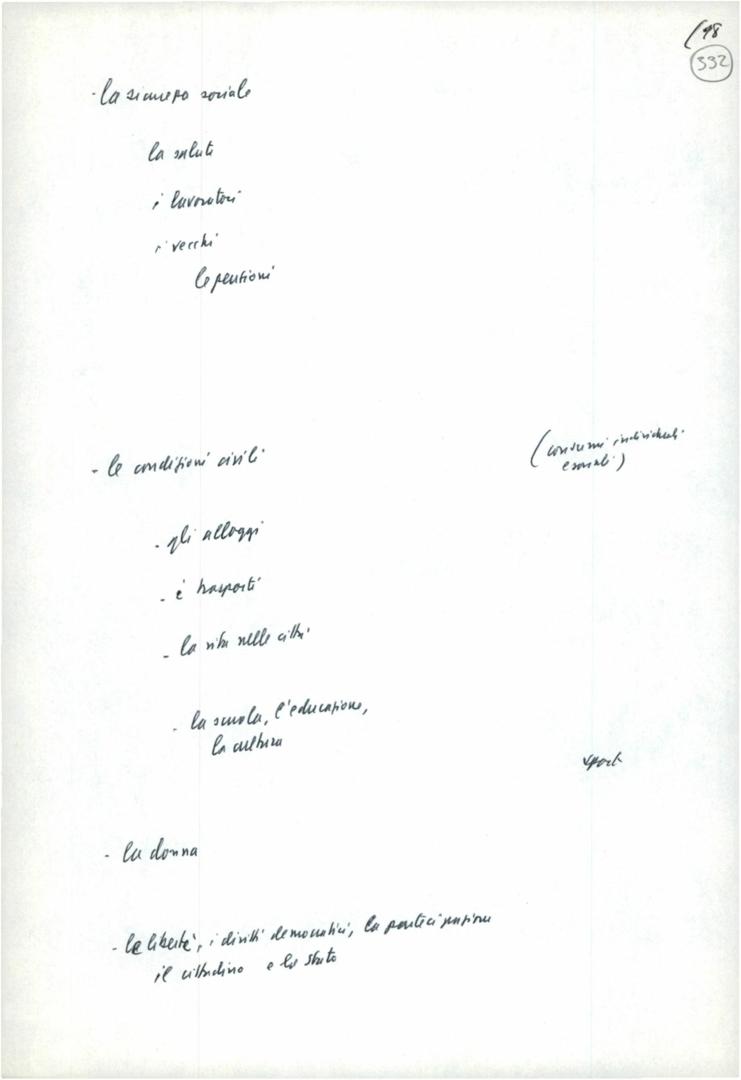 (98
332
- la sicurezza sociale
la salute
i lavoratori
i vecchi
le pensioni
- le condizioni civili
(consumi individuali
e sociali)
- gli alloggi
- i trasporti
- la vita nelle città
- la scuola, l'educazione,
la cultura
sport
- la donna
- le libertà, i diritti democratici, la partecipazione
il cittadino e lo stato